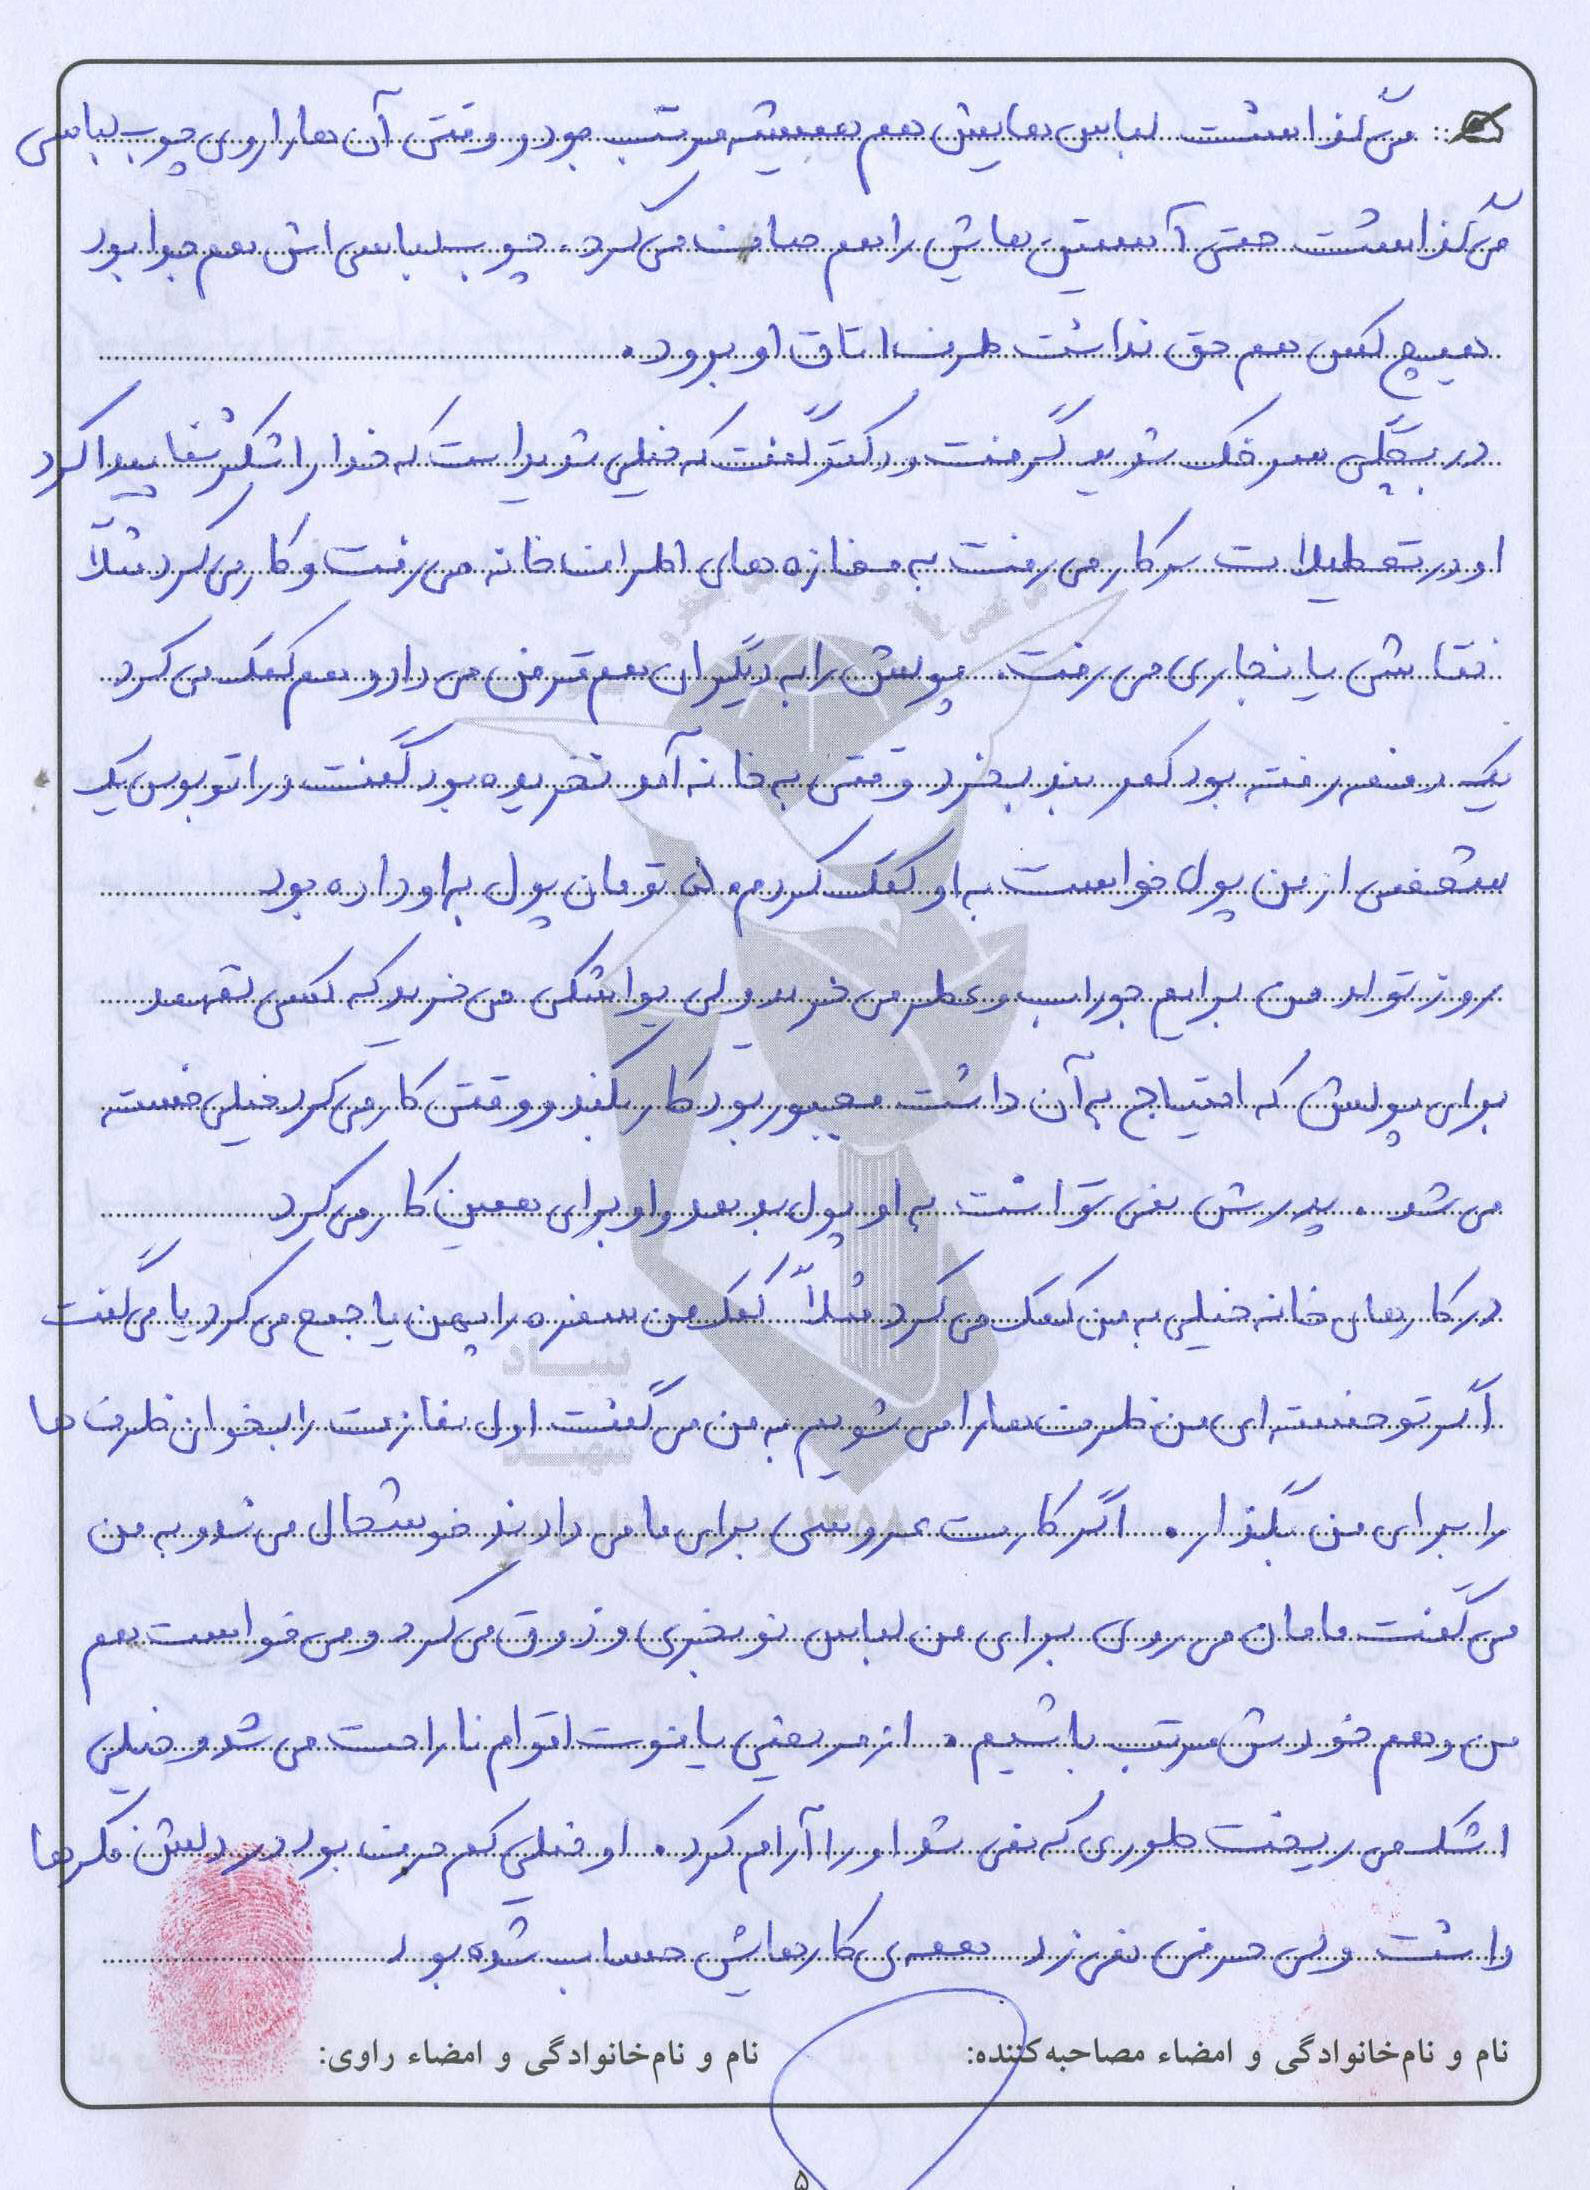 می گذاشت لباس هایش هم همیشه مرتب بود و وقتی آن ها را روی چوب لباسی
می گذاشت حتی آستین هایش را هم صاف می کرد. چوب لباسی اش هم جدا بود
هیچ کس هم حق نداشت طرف اتاق او برود.
در بچگی سرخک شدید گرفت و دکتر گفت که خیلی شدید است که خدا را شکر شفا پیدا کرد
او در تعطیلات سر کار می رفت به مغازه های اطراف خانه می رفت و کار می کرد مثلاً
نقاشی یا نجاری می رفت. پولش را به دیگران هم قرض می داد و هم کمک می کرد
یک دفعه رفته بود کمربند بخرد وقتی به خانه آمد نخریده بود گفت در اتوبوس یک
شخصی از من پول خواست به او کمک کردم. تومان پول به او داده بود
روز تولد من برایم جوراب و عطر می خرید ولی یواشکی می خرید که کسی نفهمد
برای پولش که احتیاج به آن داشت مجبور بود کار بکند و وقتی کار می کرد خیلی خسته
می شد. پدرش نمی توانست به او پول بدهد و او برای همین کار می کرد
در کارهای خانه خیلی به من کمک می کرد مثلاً کمک من سفره را پهن یا جمع می کرد یا می گفت
اگر تو خسته ای من ظرف ها را می شویم به من می گفت اول نمازت را بخوان ظرف ها
را برای من بگذار. اگر کارت عروسی برای ما می دادند خوشحال می شد و به من
می گفت مامان می روی برای من لباس نو بخری و ذوق می کرد و می خواست هم
من و هم خودش مرتب باشیم. از مریضی یا فوت اقوام ناراحت می شد و خیلی
اشک می ریخت طوری که نمی شد او را آرام کرد. او خیلی کم حرف بود در دلش فکرها
داشت ولی حرفی نمی زد همه ی کارهایش حساب شده بود
نام و نام‌خانوادگی و امضاء مصاحبه‌کننده: نام و نام‌خانوادگی و امضاء راوی:
۵